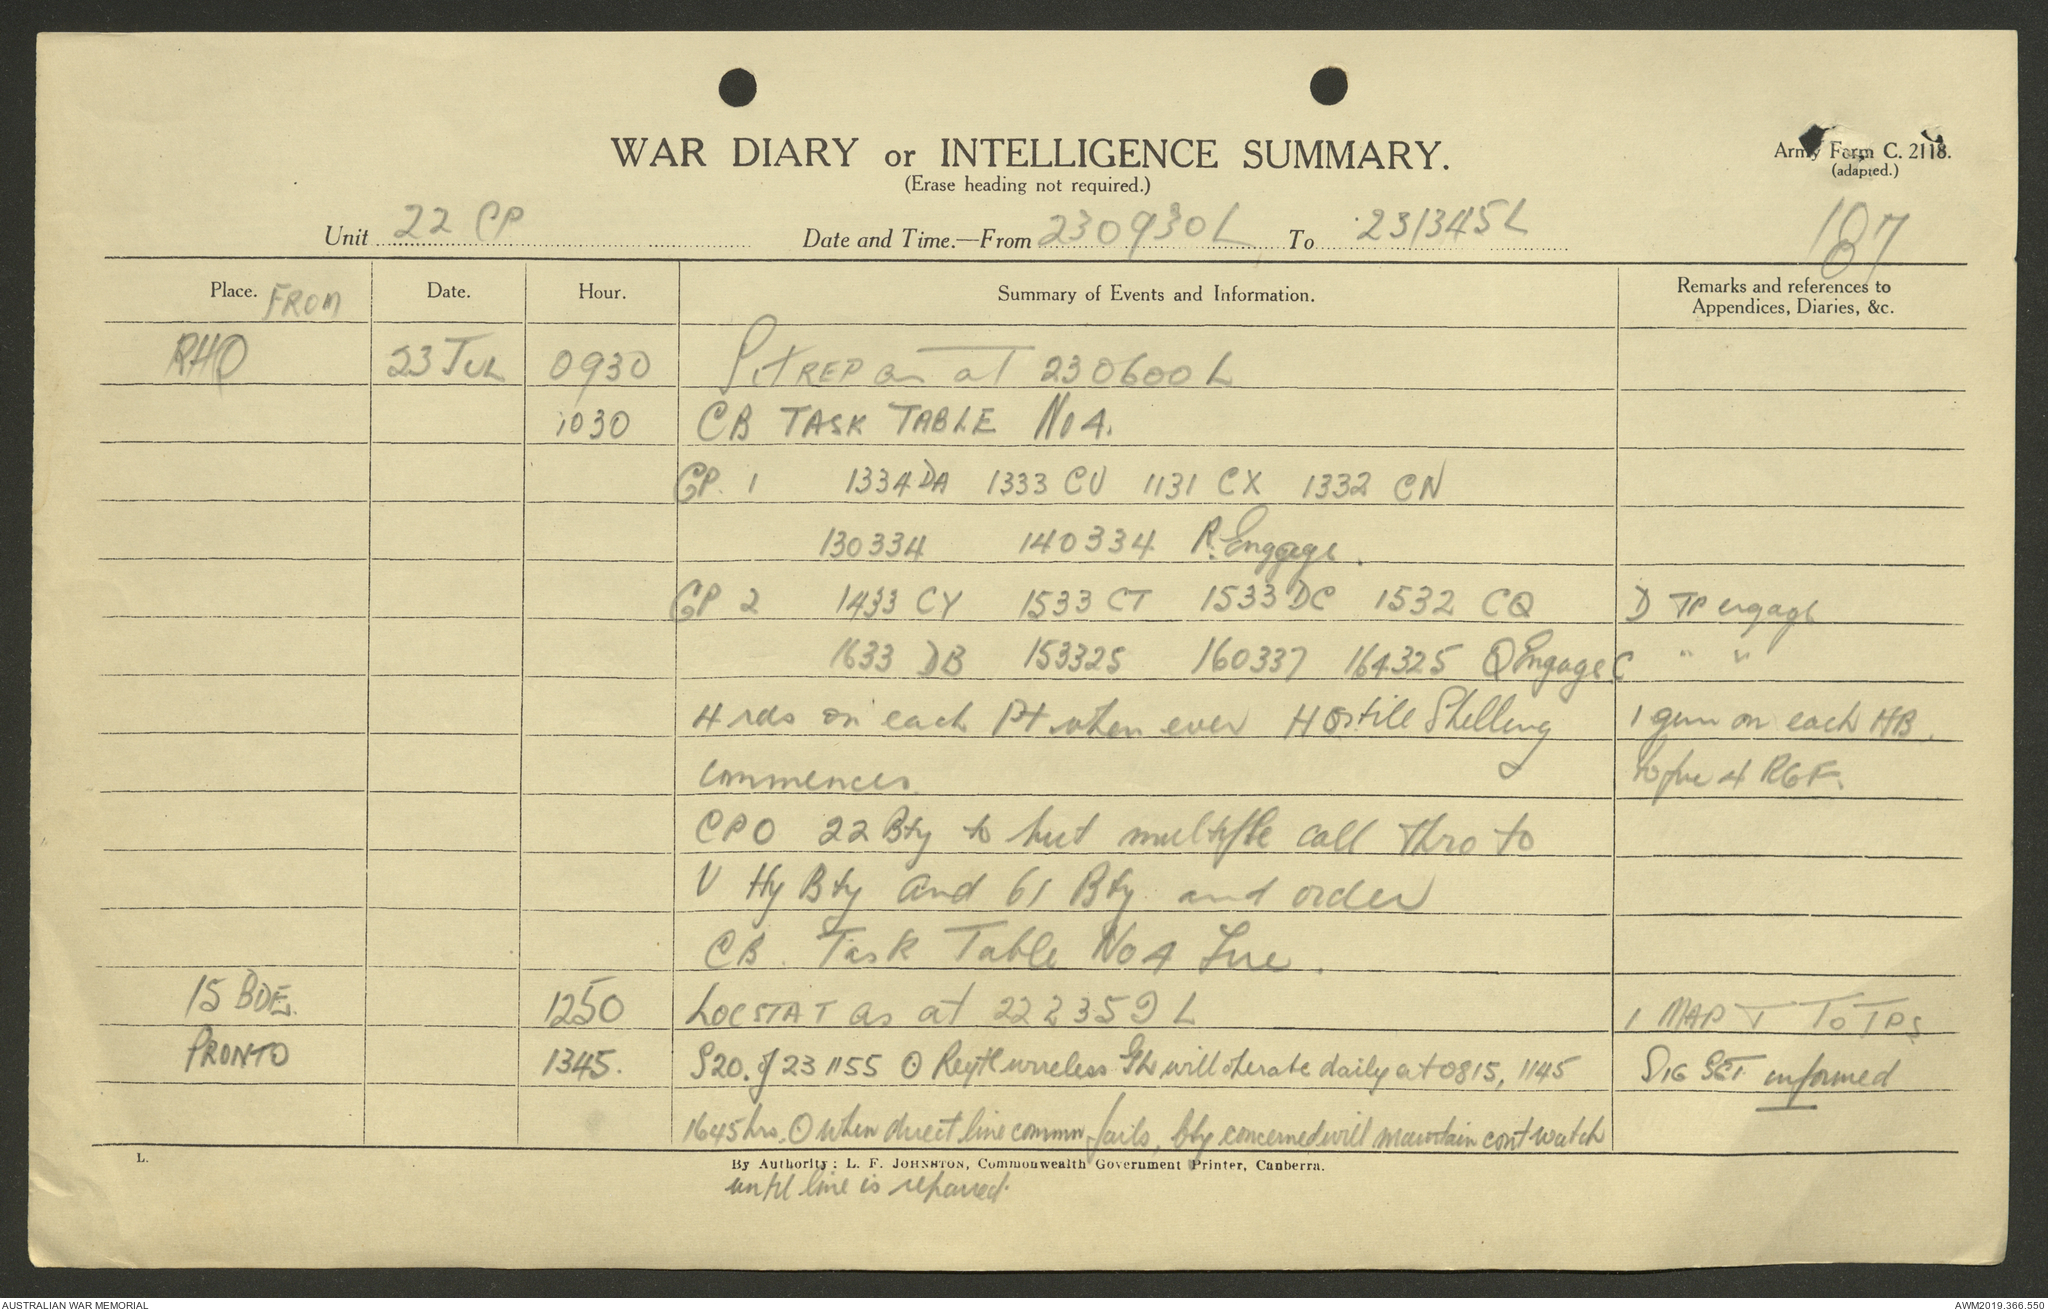 WAR DIARY or INTELLIGENCE SUMMARY.
(Erase heading not required.)
Army Form C. 2118.
(adapted.)
187
Unit 22 CP Date and Time.—From 230930L To 231345L
Place. FROM Date. Hour. Summary of Events and Information. Remarks and references to Appendices, Diaries, &c.
RHQ 23 JUL 0930 SITREP as at 230600L
1030 CB TASK TABLE No 4.
GP. 1 1334 DA 1333 CU 1131 CX 1332 CN
130334 140334 R. Engage.
GP 2 1433 CY 1533 CT 1533 DC 1532 CQ D TP engage
1633 DB 153325 160337 164325 Q Engage C " "
4 rds on each Pt when ever Hostile Shelling 1 gun on each HB.
commences to fire 4 RGF.
CPO 22 Bty to put multiple call thro to
V Hy Bty and 61 Bty and order
CB. Task Table No 4 Fire.
15 BDE. 1250 LOCSTAT as at 222359L 1 MAP T TO TPS
PRONTO 1345. S20. of 231155 O wireless will operate daily at 0815, 1145 SIG SGT informed
1645 hrs. O when direct line commn fails, bty concerned will maintain cont watch
L. By Authority: L. F. JOHNSTON, Commonwealth Government Printer, Canberra.
until line is repaired.
AUSTRALIAN WAR MEMORIAL
AWM2019.366.550